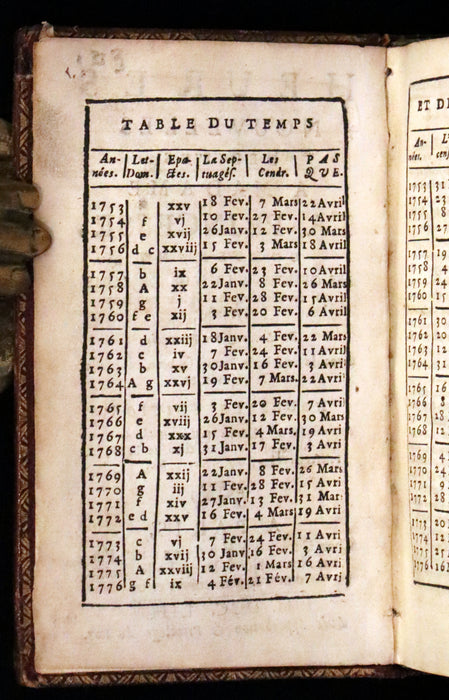 TABLE DU TEMPS
An- Let- Epa- La Sep- Les PAS
nées. Dom. ctes. tuagés. Cendr. QUE.
1753 g xxv 18 Fev. 7 Mars 22 Avril
1754 f vj 10 Fev. 27 Fev. 14 Avril
1755 e xvij 26 Janv. 12 Fev. 30 Mars
1756 d c xxviij 15 Fev. 3 Mars 18 Avril
1757 b ix 6 Fev. 23 Fev. 10 Avril
1758 A xx 22 Janv. 8 Fev. 26 Mars
1759 g j 11 Fev. 28 Fev. 15 Avril
1760 f e xij 3 Fev. 20 Fev. 6 Avril
1761 d xxiij 18 Janv. 4 Fev. 22 Mars
1762 c iv 7 Fev. 24 Fev. 11 Avril
1763 b xv 30 Janv. 16 Fev. 3 Avril
1764 A g xxvj 19 Fev. 7 Mars. 22 Avril
1765 f vij 3 Fev. 20 Fev. 7 Avril
1766 e xviij 26 Janv. 12 Fev. 30 Mars
1767 d xxx 15 Fev. 4 Mars. 19 Avri
1768 c b xj 31 Janv. 17 Fev. 3 Avri
1769 A xxij 22 Janv. 8 Fev. 26 Mars
1770 g iij 11 Fev. 28 Fev. 15 Avri
1771 f xiv 27 Janv. 13 Fev. 31 Mar
1772 e d xxv 16 Fev. 4 Mars 19 Avri
1773 c vj 7 Fev. 24 Fev. 11 Avri
1774 b xvij 30 Janv. 16 Fev. 3 Avri
1775 A xxviij 12 Fev. 1 Mars 16 Avri
1776 g f ix 4 Fév. 21 Fév. 7 Avri
ET D
An-
nées.
1753 31
1757
1758 4
1759
1760
1761 30
1762
1763
1764
1765 16
1766 8
1769
1770
1771
1772 28
1773 20
1774 12
1776 16